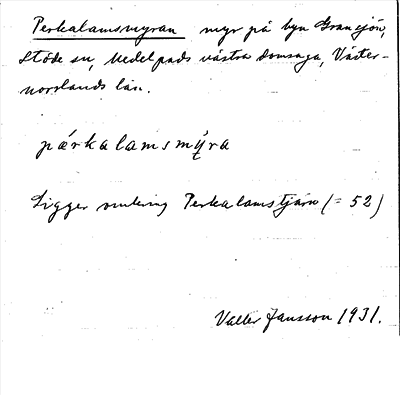 Perkalamsmyran myr på byn Gransjön,
Stöde sn, Medelpads västra domsaga, Väster-
norrlands län.
pærkalamsmy̨ra
Ligger omkring Perkalamstjärn (= 52)
Valter Jansson 1931.